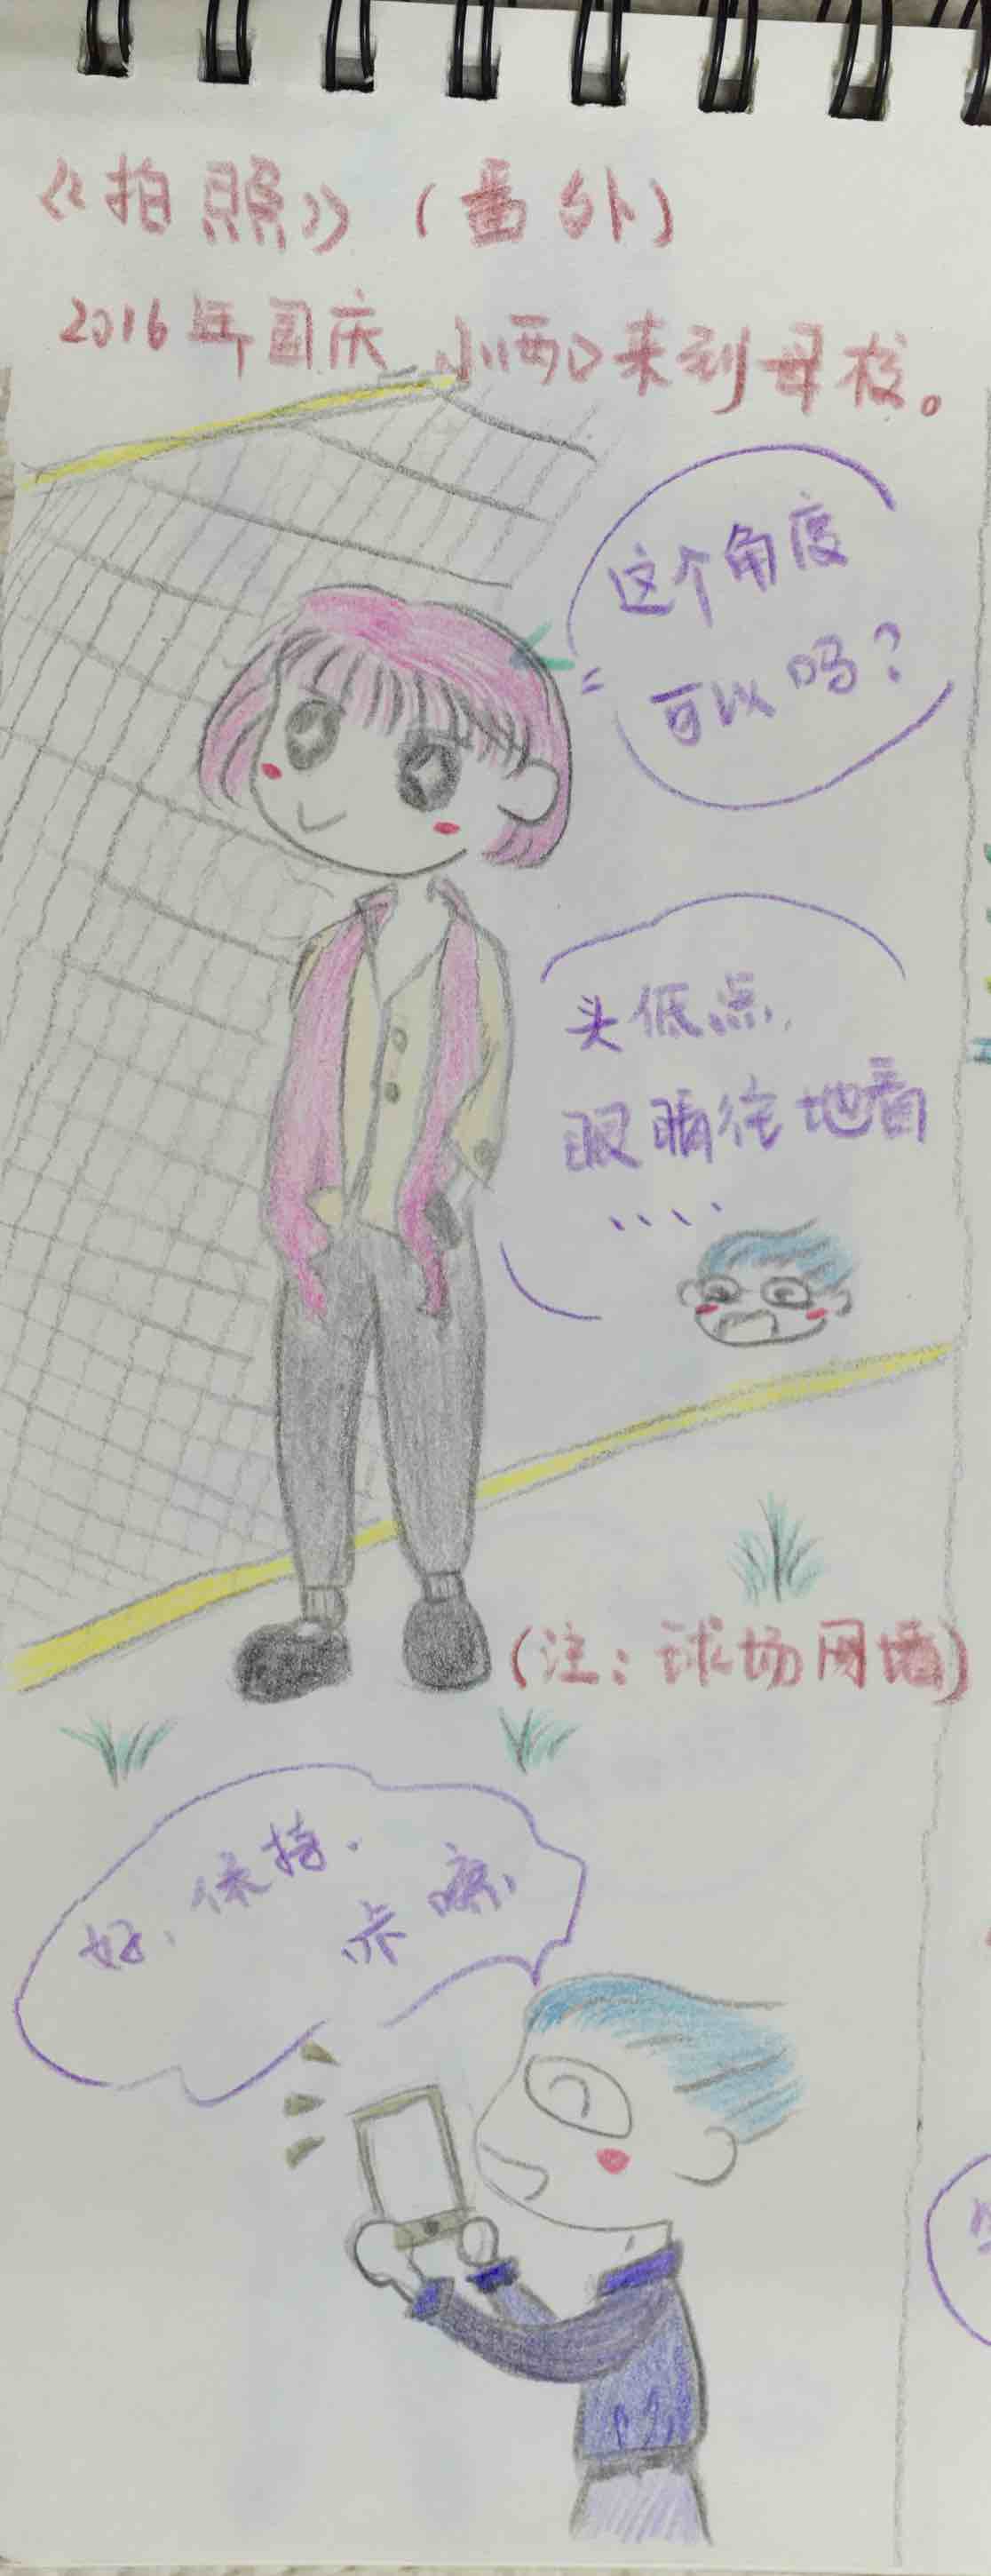 《拍照》（番外）
2016年国庆 小西口来到母校。
这个角度
可以吗？
头低点，
眼睛往地看
、、、、
（注：球场网墙）
好、保持.
咔嚓、